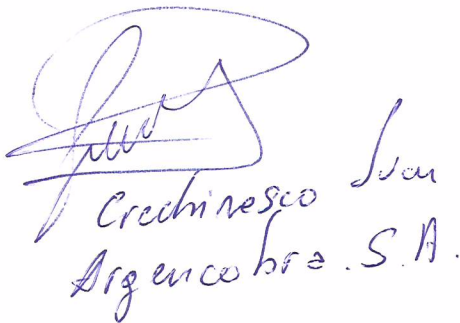 Crechinesco Juan
Argencobra. S.A.